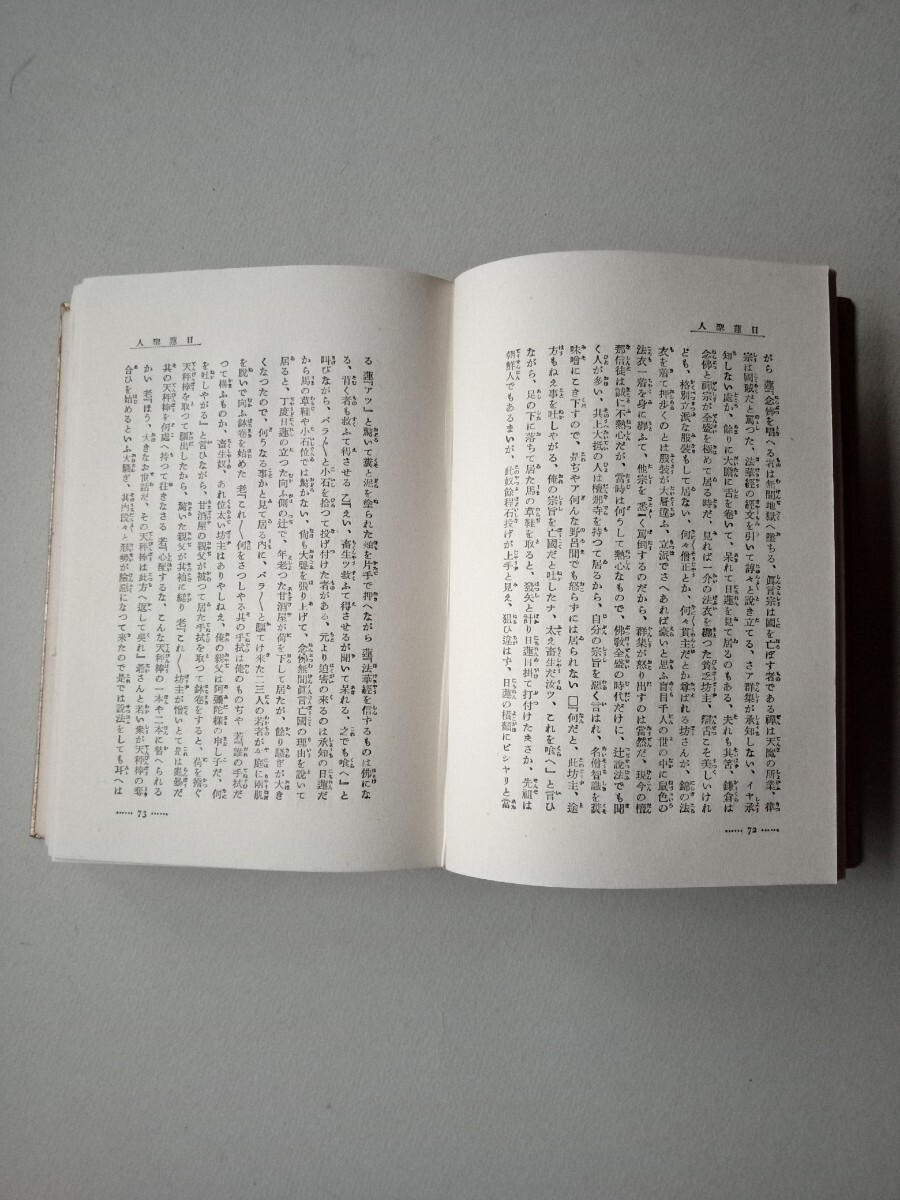 日蓮聖人
がら 蓮『念佛を唱へる者は無間地獄へ墮ちる、眞言宗は國を亡ぼす者である禪は天魔の所業、律
宗は國賊だと罵つた、法華經の經文を引いて諄々と説き立てる、さア群集が承知しない、イヤ承
知しない處か、餘りに大膽に舌を捲いて、呆れて日蓮を見て居るのもある、夫れも其筈、鎌倉は
念佛と禪宗が全盛を極めて居る時だ、見れば一介の法衣を纏つた貧乏坊主、辯舌こそ美しいけれ
ども、格別立派な服裝もして居ない、何々僧正とか、何々貫主だとか尊ばれる坊さんが、錦の法
衣を着て押歩くのとは服裝が大層違ふ、立派でさへあれば豪いと思ふ盲目千人の世の中に鼠色の
法衣一着を身に纏ふて、他宗を悉く罵倒するのだから、群集が怒り出すのは當然だ、現今の檀
那信徒は誠に不熱心だが、當時は何うして熱心なもので、佛教全盛の時代だけに、辻説法でも聞
く人が多い、其上大抵の人は檀那寺を持つて居るから、自分の宗旨を惡く言はれ、名僧智識を糞
味噌にこき下すので、何ぢやア何んな野呂間でも怒らずには居られない □『何だと、此坊主、途
方もねえ事を吐しやがる、俺の宗旨を亡國だと吐したナ、太え畜生だ汝ツ、これを喰へ』と言ひ
ながら、足の下に落ちて居た馬の草鞋を取ると、發矢と計り日蓮目掛て打付けたまさか、先祖は
朝鮮人でもあるまいが、此奴餘程石投げが上手と見え、狙ひ違はず、日蓮の横顏にピシヤリと當
……72……
日蓮聖人
る 蓮『アツ』と驚いて糞と泥を塗られた頬を片手で押へながら 蓮『法華經を信ずるものは佛にな
る、背く者も救ふて得させる 乙『えい、畜生ツ救ふて得させるが聞いて呆れる、之でも喰へ』と
叫びながら、バラ〳〵と小石を拾つて投げ付けた者がある、元より迫害の來るのは承知の日蓮だ
から馬の草鞋や小石位では驚かない、尚も大聲を張り上げて、念佛無間眞言亡國の理由を説いて
居ると、丁度日蓮の立つた向ふ側の辻で、年老つた甘酒屋が荷を下して居たが、餘り騷ぎが大き
くなつたので、何うなる事かと見て居る内に、バラ〳〵と驅けて來た二三人の若者が、庭に兩肌
を脱いで向ふ鉢卷を始めた 老『これ〳〵何をさつしやる其の手拭は俺のものぢや 若『爺の手拭だ
つて構ふものか、畜生奴、あれ位太い坊主はありやしねえ、俺の親父は阿彌陀樣の申し子だ、何
を吐しやがる』と言ひながら、甘酒屋の親父が被つて居た手拭を取つて鉢卷をすると、荷を擔ぐ
天秤棒を取つて驅出したから、驚いた親父が其袖に縋り 老『これ〳〵坊主が憎いとて是は亂暴だ
其の天秤棒を何處へ持つて往きなさる 若『心配するな、こんな天秤棒の一本や二本に替へられる
かい 老『ほう、大きなお世話だ、その天秤棒は此方へ返して呉れ』爺さんと若い衆が天秤棒の奪
合ひを始めるといふ大騷ぎ、其内段々と形勢が險惡になつて來たので是では説法をしても耳へは
……73……